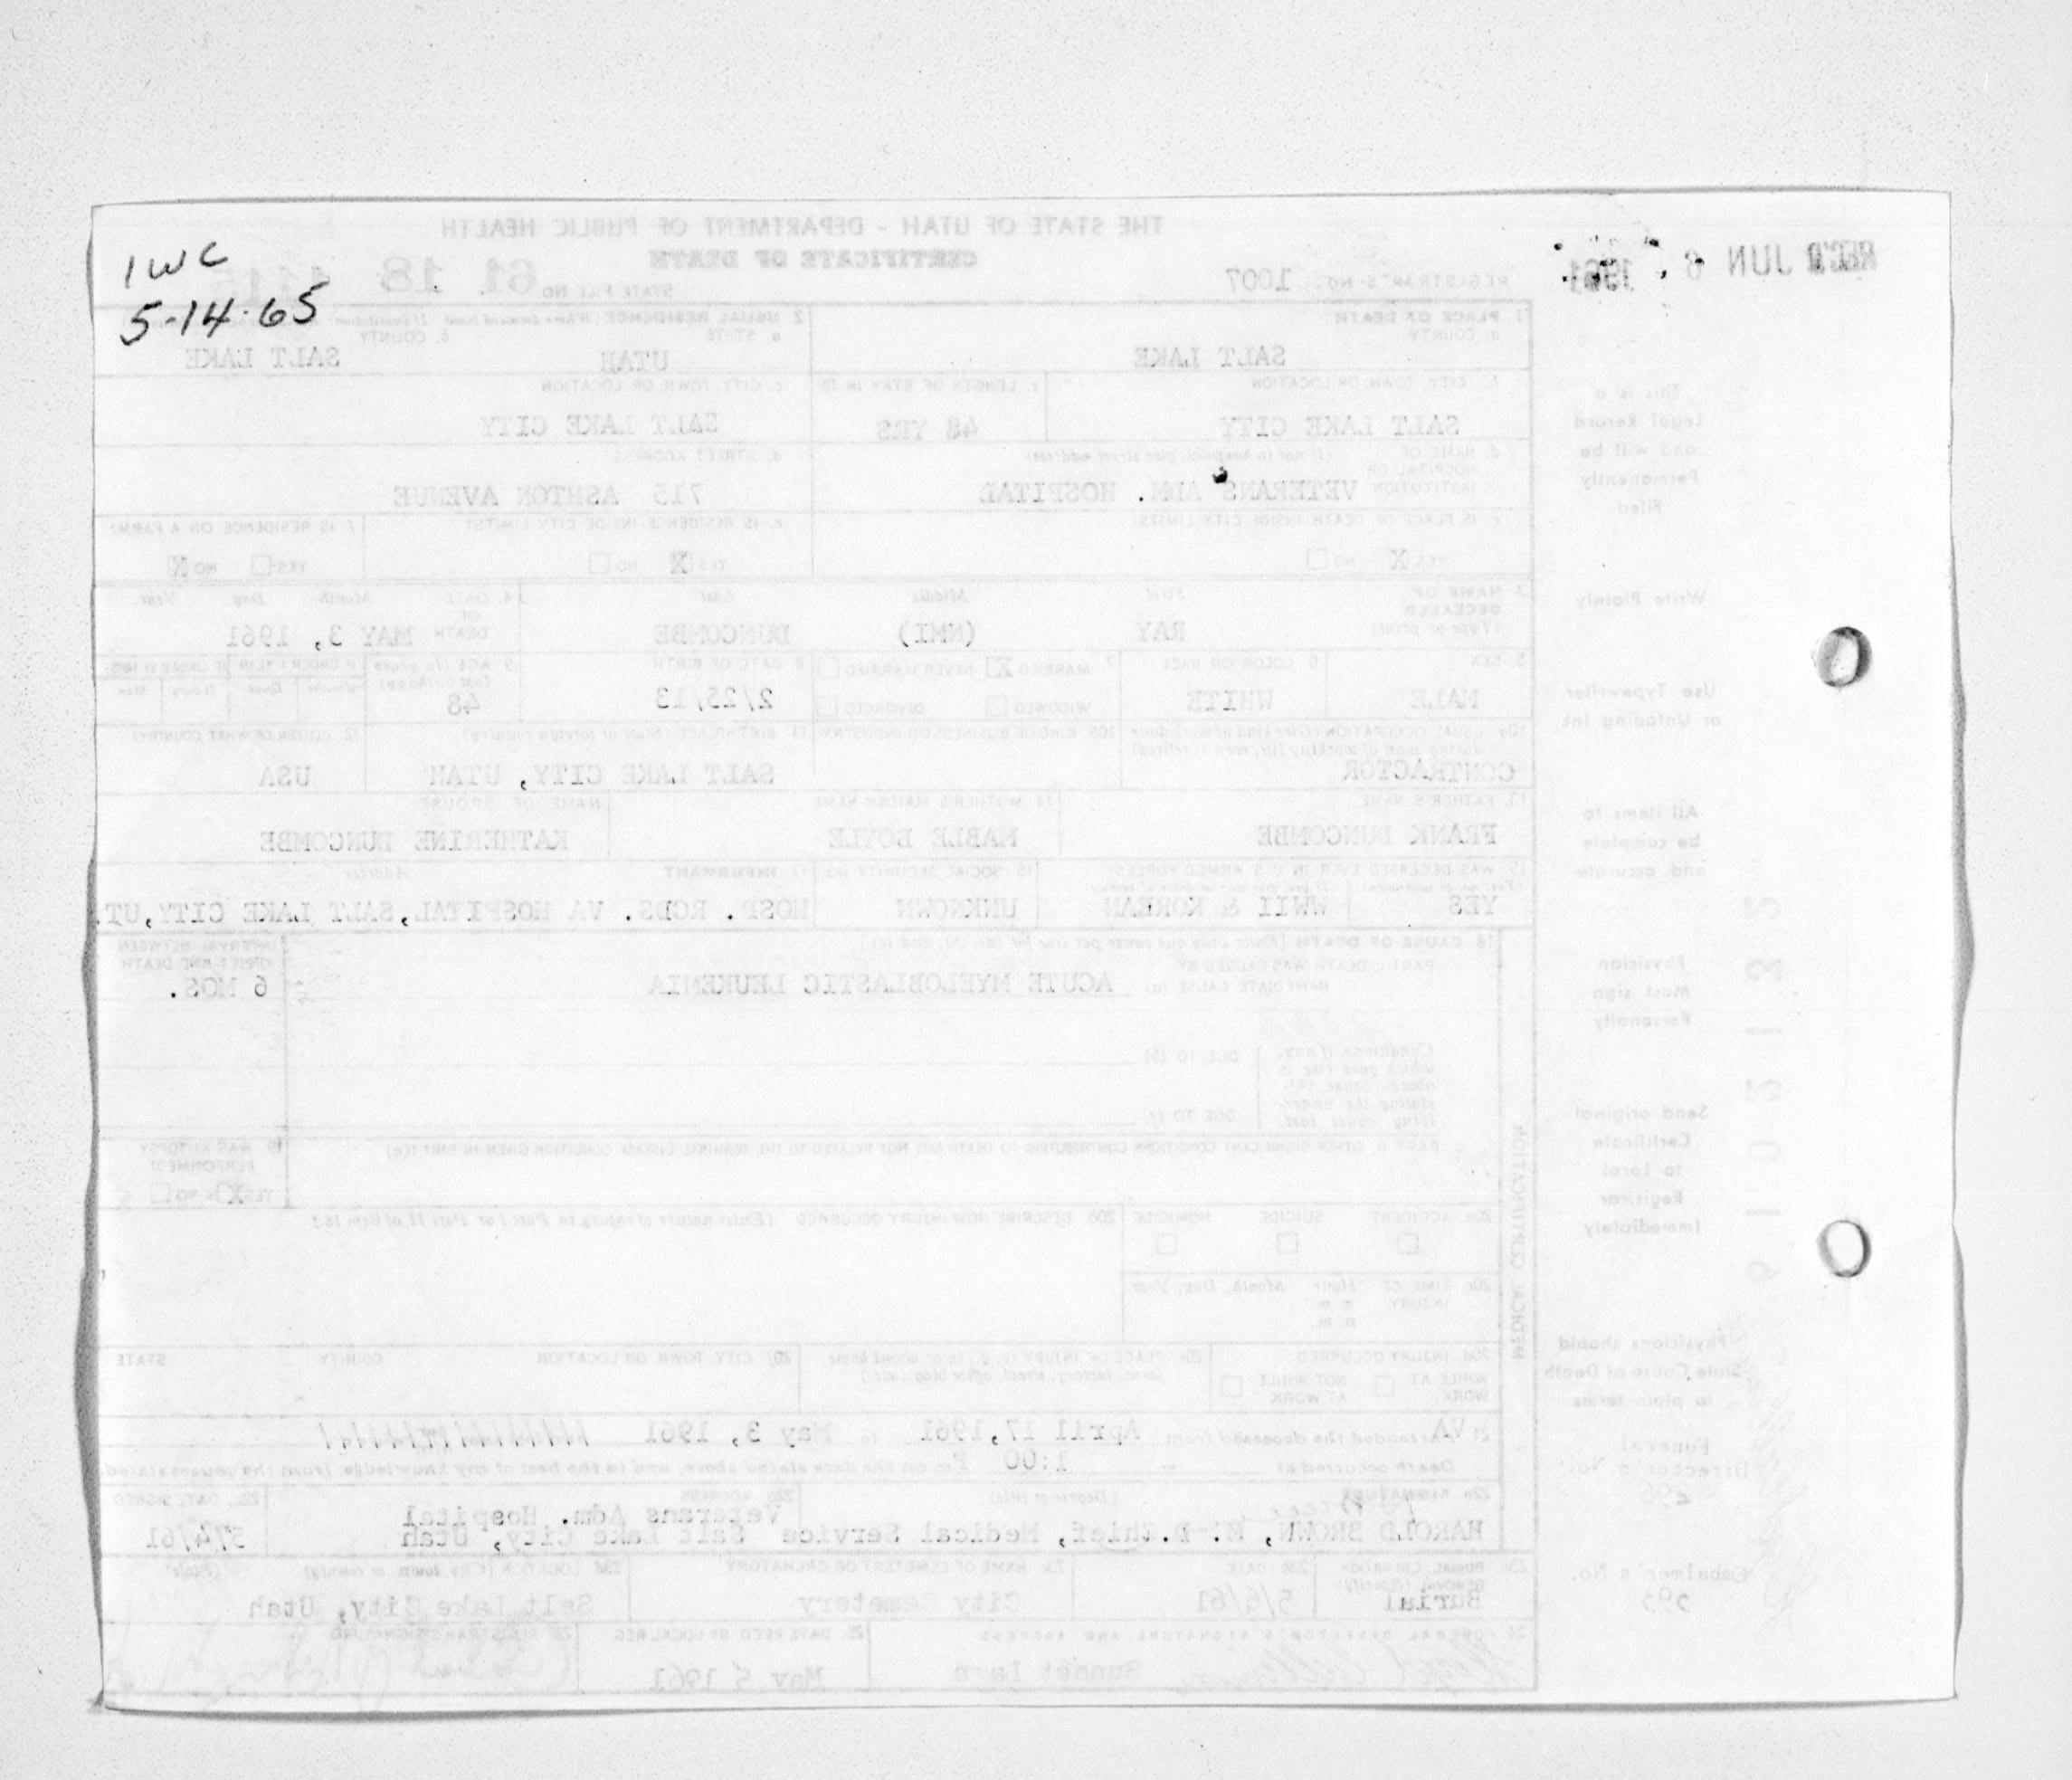 1WC
5-14-65
REC'D JUN 6 1961
THE STATE OF UTAH - DEPARTMENT OF PUBLIC HEALTH
CERTIFICATE OF DEATH
REGISTRAR'S NO. 1007
STATE FILE NO. 61 18
1. PLACE OF DEATH
a. COUNTY
SALT LAKE
2. USUAL RESIDENCE
a. STATE
UTAH
b. COUNTY
SALT LAKE
b. CITY, TOWN OR LOCATION
SALT LAKE CITY
c. LENGTH OF STAY IN
48 YRS
c. CITY, TOWN OR LOCATION
SALT LAKE CITY
d. NAME OF HOSPITAL OR INSTITUTION (If not in hospital, give street address)
VETERANS ADM. HOSPITAL
d. STREET ADDRESS
715 ASHTON AVENUE
e. IS PLACE OF DEATH INSIDE CITY LIMITS?
YES X NO
e. IS RESIDENCE INSIDE CITY LIMITS?
YES X NO
f. IS RESIDENCE ON A FARM?
YES NO X
3. NAME OF DECEASED (Type or print)
First Middle Last
RAY (NMI) DUNCOMBE
4. DATE OF DEATH
Month Day Year
MAY 3, 1961
5. SEX
MALE
6. COLOR OR RACE
WHITE
7. MARRIED X NEVER MARRIED
WIDOWED DIVORCED
8. DATE OF BIRTH
2/25/13
9. AGE (In years last birthday)
48
10a. USUAL OCCUPATION (Give kind of work done during most of working life, even if retired)
CONTRACTOR
10b. KIND OF BUSINESS OR INDUSTRY
11. BIRTHPLACE (State or foreign country)
SALT LAKE CITY, UTAH
12. CITIZEN OF WHAT COUNTRY?
USA
13. FATHER'S NAME
FRANK DUNCOMBE
14. MOTHER'S MAIDEN NAME
MABLE BOYLE
NAME OF SPOUSE
KATHERINE DUNCOMBE
15. WAS DECEASED EVER IN U.S. ARMED FORCES?
YES WWII & KOREAN
16. SOCIAL SECURITY NO.
UNKNOWN
17. INFORMANT Address
HOSP. RCDS. VA HOSPITAL, SALT LAKE CITY, UT.
18. CAUSE OF DEATH [Enter only one cause per line for (a), (b), and (c)]
PART I. DEATH WAS CAUSED BY
IMMEDIATE CAUSE (a) ACUTE MYELOBLASTIC LEUKEMIA
INTERVAL BETWEEN ONSET AND DEATH
6 MOS.
Conditions, if any, which gave rise to above cause (a), stating the underlying cause last.
DUE TO (b)
DUE TO (c)
PART II. OTHER SIGNIFICANT CONDITIONS CONTRIBUTING TO DEATH BUT NOT RELATED TO THE TERMINAL DISEASE CONDITION GIVEN IN PART I(a)
19. WAS AUTOPSY PERFORMED?
YES X NO
MEDICAL CERTIFICATION
20a. ACCIDENT SUICIDE HOMICIDE
20b. DESCRIBE HOW INJURY OCCURRED (Enter nature of injury in Part I or Part II of item 18.)
20c. TIME OF INJURY Hour Month, Day, Year
a.m.
p.m.
20d. INJURY OCCURRED
WHILE AT WORK NOT WHILE AT WORK
20e. PLACE OF INJURY (e.g., in or about home, farm, factory, street, office bldg., etc.)
20f. CITY, TOWN, OR LOCATION COUNTY STATE
21. VA attended the deceased from April 17, 1961 to May 3, 1961
Death occurred at 1:00 P m on the date stated above, and to the best of my knowledge, from the causes stated.
22a. SIGNATURE (Degree or title)
HAROLD BROWN, M. D. Chief, Medical Service
22b. ADDRESS
Veterans Adm. Hospital
Salt Lake City, Utah
22c. DATE SIGNED
5/4/61
23a. BURIAL, CREMATION REMOVAL (Specify)
Burial
23b. DATE
5/6/61
23c. NAME OF CEMETERY OR CREMATORY
City Cemetery
23d. LOCATION (City, town, or county) (State)
Salt Lake City, Utah
24. FUNERAL DIRECTOR'S SIGNATURE AND ADDRESS
Sunset Lawn
25. DATE REC'D BY LOCAL REG.
May 5 1961
26. REGISTRAR'S SIGNATURE
This is a
Legal Record
and will be
Permanently
Filed
Write Plainly
Use Typewriter
or Unfading Ink
All items to
be complete
and accurate
Physician
Must sign
Personally
Send original
Certificate
to Local
Registrar
Immediately
Physicians should
State Cause of Death
in plain terms
Funeral
Director's No.
296
Embalmer's No.
393